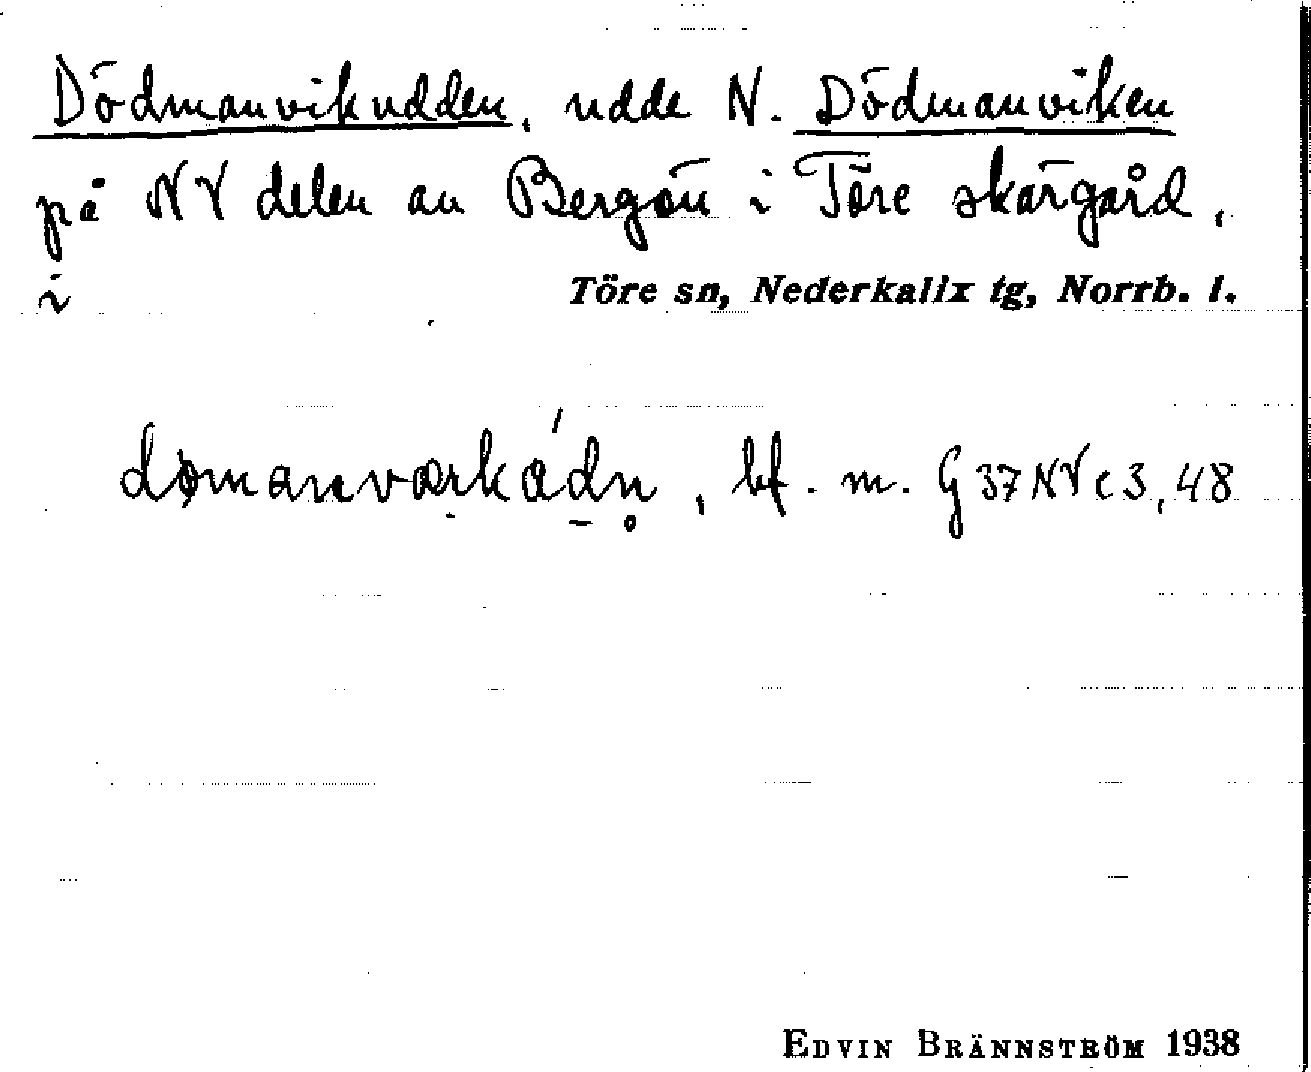 Dödmanvikudden, udde N. Dödmanviken
på NV delen av Bergön i Töre skärgård,
i Töre sn, Nederkalix tg, Norrb. l.
bf. m. G 37 NV c 3, 48
EDVIN BRÄNNSTRÖM 1938